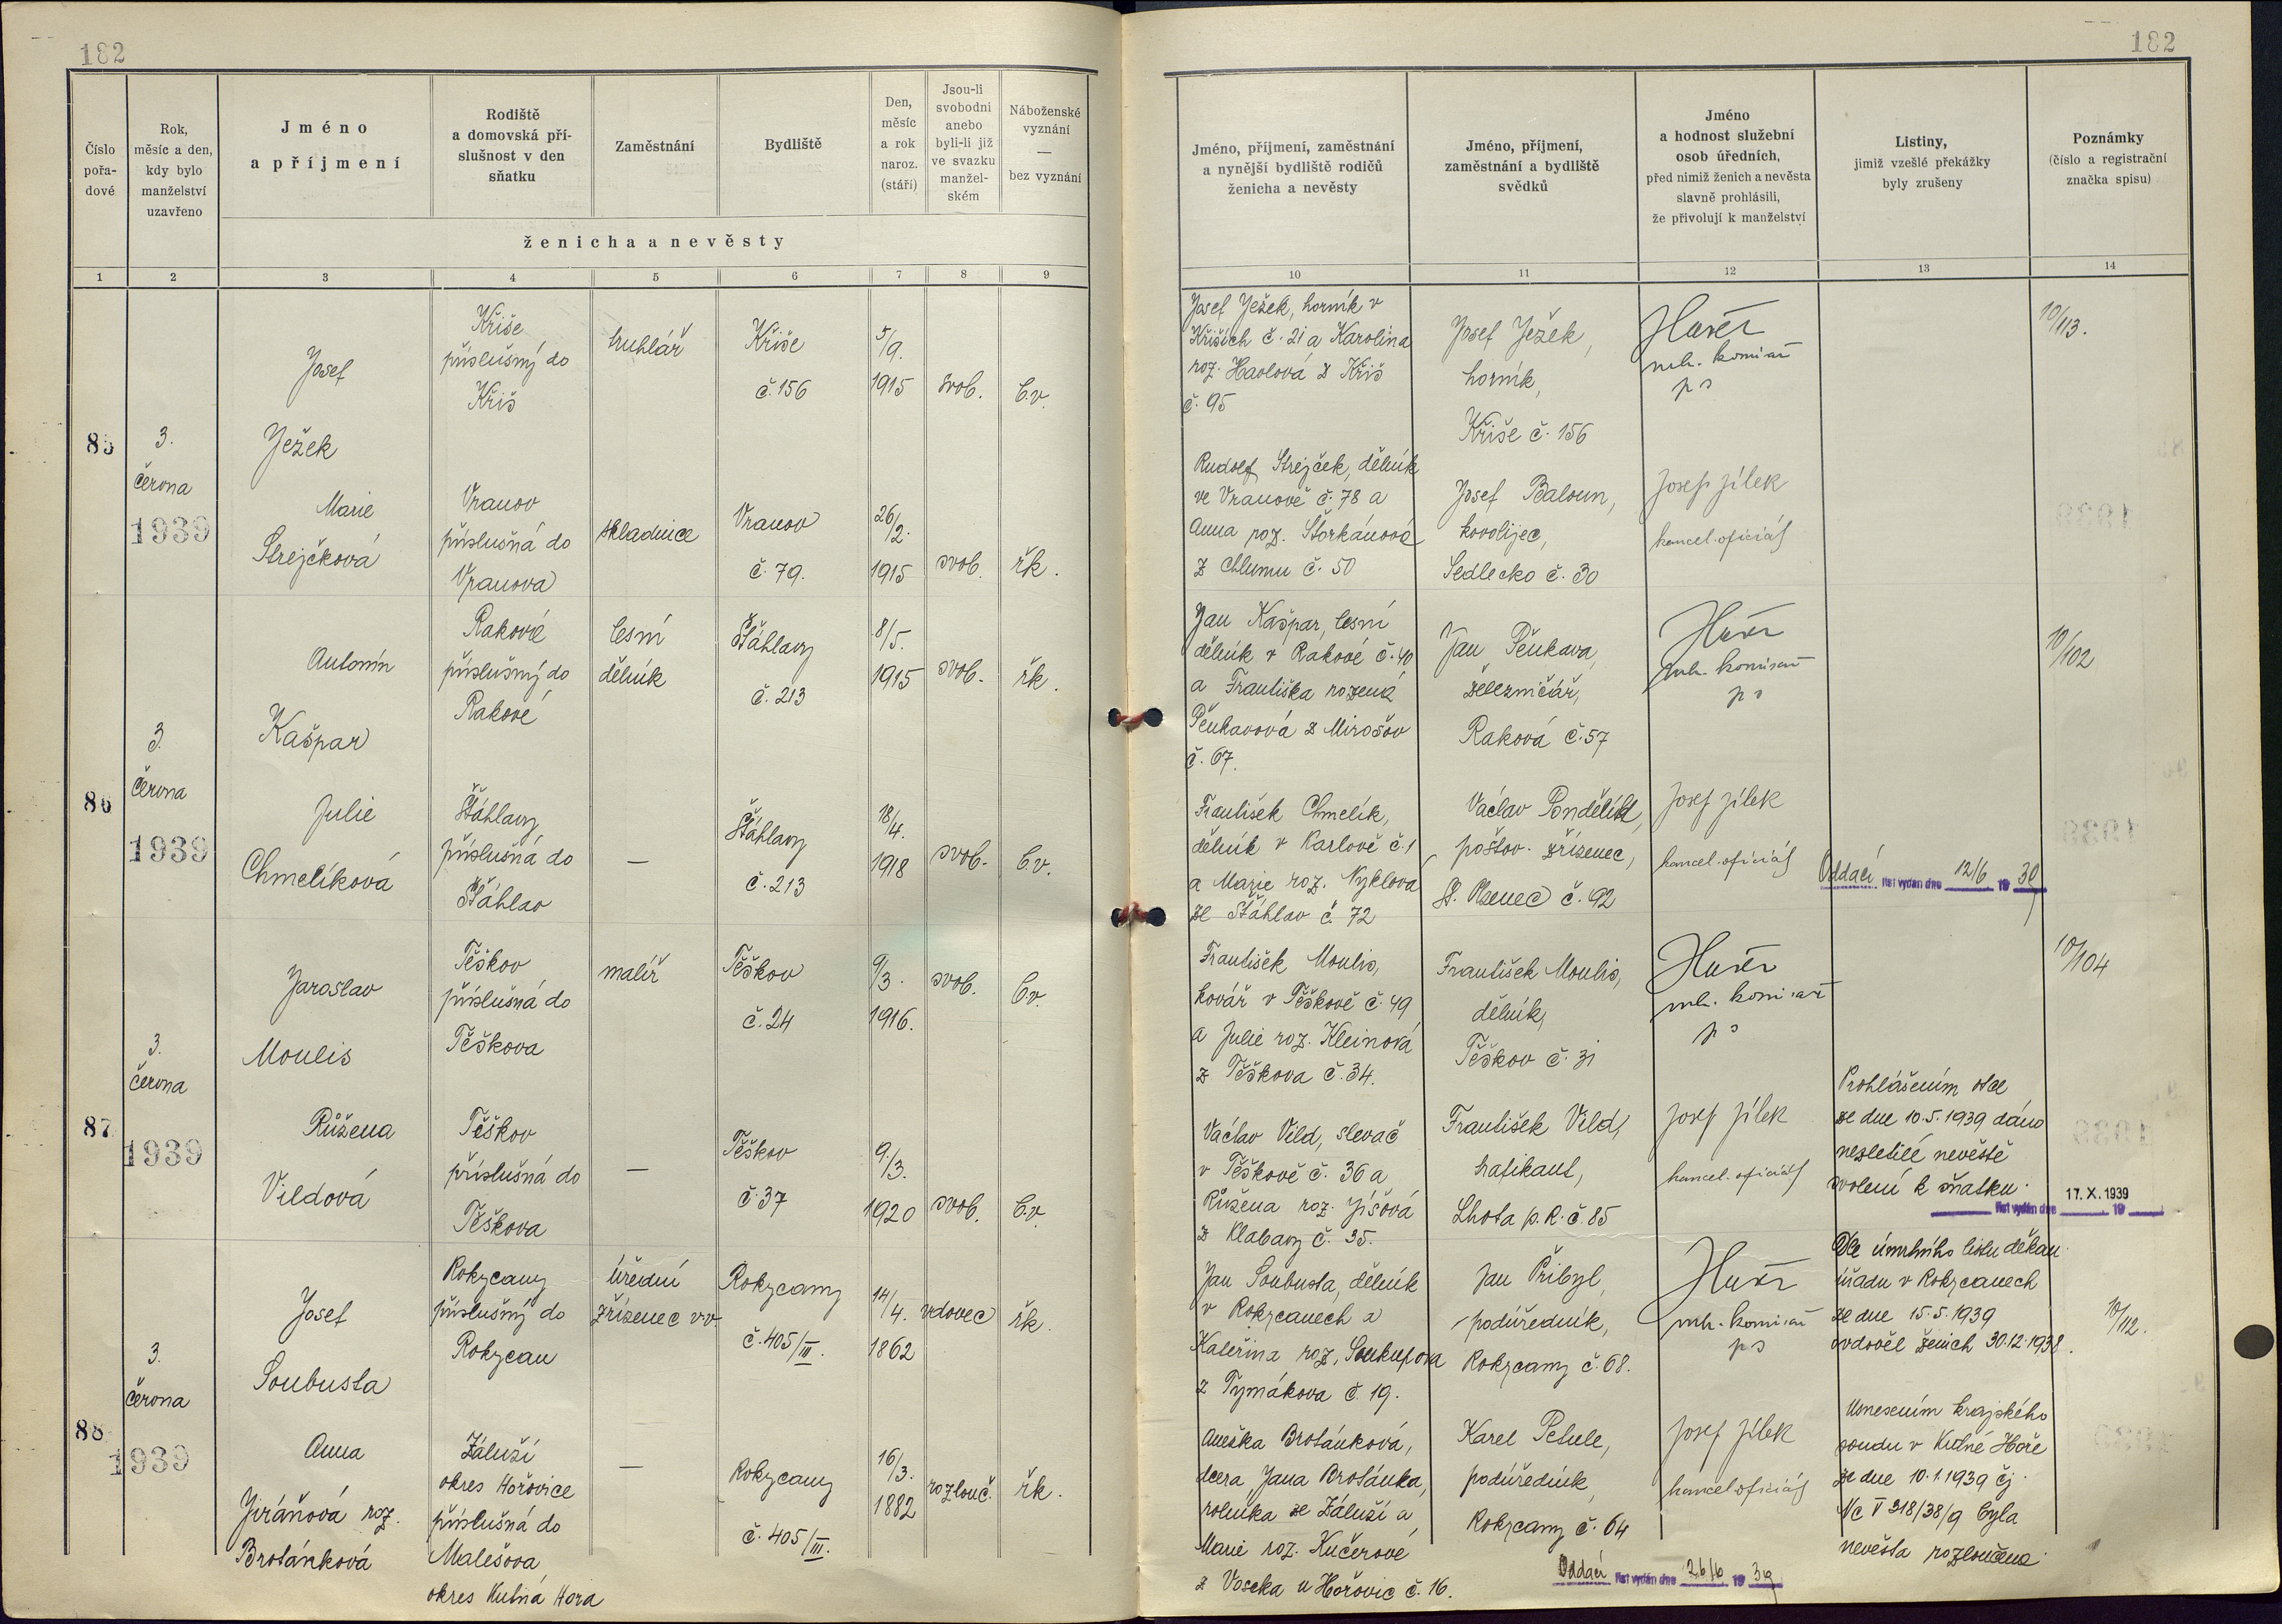 182
182
Číslo
pořa-
dové
Rok,
měsíc a den,
kdy bylo
manželství
uzavřeno
Jméno
a příjmení
Rodiště
a domovská pří-
slušnost v den
sňatku
Zaměstnání
Bydliště
Den,
měsíc
a rok
naroz.
(stáří)
Jsou-li
svobodni
anebo
byli-li již
ve svazku
manžel-
ském
Náboženské
vyznání
—
bez vyznání
ženicha a nevěsty
1 2 3 4 5 6 7 8 9
Jméno, příjmení, zaměstnání
a nynější bydliště rodičů
ženicha a nevěsty
Jméno, příjmení,
zaměstnání a bydliště
svědků
Jméno
a hodnost služební
osob úředních,
před nimiž ženich a nevěsta
slavně prohlásili,
že přivolují k manželství
Listiny,
jimiž vzešlé překážky
byly zrušeny
Poznámky
(číslo a registrační
značka spisu)
10 11 12 13 14
85
3.
června
1939
Josef
Ježek
Kříše
příslušný do
Kříš
truhlář
Kříše
č. 156
5/9.
1915
svob.
b.v.
Marie
Strejčková
Vranov
příslušná do
Vranova
skladnice
Vranov
č. 79.
26/2.
1915
svob.
řk.
Josef Ježek, horník v
Kříších č. 21 a Karolina
roz. Havlová z Kříš
č. 95
Josef Ježek,
horník,
Kříše č. 156
10/113.
Rudolf Strejček, dělník
ve Vranově č. 78 a
Anna roz. Štorkánová
z Chlumu č. 50
Josef Baloun,
kovolijec,
Sedlecko č. 30
Josef Jílek
kancel. oficiál
86
3.
června
1939
Antonín
Kašpar
Rakové
příslušný do
Rakové
lesní
dělník
Šťáhlavy
č. 213
8/5.
1915
svob.
řk.
Julie
Chmelíková
Šťáhlavy
příslušná do
Šťáhlav
—
Šťáhlavy
č. 213
18/4.
1918
svob.
b.v.
Jan Kašpar, lesní
dělník v Rakové č. 40
a Františka rozená
Pěnkavová z Mirošov
č. 67.
Jan Pěnkava,
železničář,
Raková č. 57
10/102
František Chmelík,
dělník v Karlově č. 1
a Marie roz. Nyklova
ze Šťáhlav č. 72
Václav Pondělík,
poštov. zřízenec,
St. Plzenec č. 92
Josef Jílek
kancel. oficiál
Oddací list vydán dne 12/6 19 39
87
3.
června
1939
Jaroslav
Moulis
Těškov
příslušná do
Těškova
malíř
Těškov
č. 24
9/3.
1916.
svob.
b.v.
Růžena
Vildová
Těškov
příslušná do
Těškova
—
Těškov
č. 37
9./3.
1920
svob.
b.v.
František Moulis,
kovář v Těškově č. 49
a Julie roz. Kleinová
z Těškova č. 34.
František Moulis,
dělník,
Těškov č. 31
10/104
Václav Vild, slevač
v Těškově č. 36 a
Růžena roz. Jíšová
z Klabavy č. 35.
František Vild,
trafikant,
Lhota p. R. č. 85
Josef Jílek
kancel. oficiál
Prohlášením otce
ze dne 10.5.1939 dáno
nezletilé nevěstě
svolení k sňatku.
17. X. 1939
list vydán dne 19
88
3.
června
1939
Josef
Soubusta
Rokycany
příslušný do
Rokycan
úřední
zřízenec v.v.
Rokycany
č. 405/III.
14/4.
1862
vdovec
řk.
Anna
Jiráňová roz.
Brotánková
Záluží
okres Hořovice
příslušná do
Malešova,
okres Kutná Hora
—
Rokycany
č. 405/III.
16/3.
1882
rozlouč.
řk.
Jan Soubusta, dělník
v Rokycanech a
Kateřina roz. Soukupova
z Tymákova č. 19.
Jan Přibyl,
podúředník,
Rokycany č. 68.
Dle úmrtního listu děkan.
úřadu v Rokycanech
ze dne 15.5.1939
ovdověl ženich 30.12.1938.
10/112.
Anežka Brotánková,
dcera Jana Brotánka,
rolníka ze Záluží a
Marie roz. Kučerové
z Voseka u Hořovic č. 16.
Karel Petule,
podúředník,
Rokycany č. 64
Josef Jílek
kancel. oficiál
Usnesením krajského
soudu v Kutné Hoře
ze dne 10.1.1939 čj.
Nc V 318/38/9 byla
nevěsta rozloučena.
Oddací list vydán dne 26/6 19 39